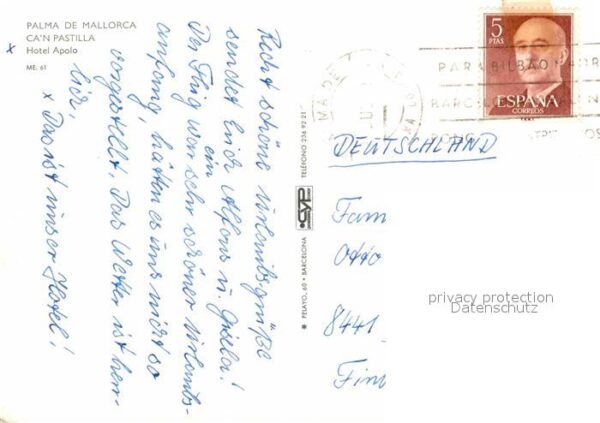 PALMA DE MALLORCA
CA'N PASTILLA
Hotel Apolo
ME. 61
x
Recht schöne Urlaubsgrüße
sendet Euch Alfons u. Gisela!
Der Flug war sehr schöner Urlaubs-
ein
anfang, hätten es uns nicht so
vorgestellt. Das Wetter ist herr-
lich,
x Das ist unser Hotel!
TELÉFONO 236 92 21
CYP
PELAYO, 60 • BARCELONA
5
PTAS
ESPAÑA
CORREOS
PARA BILBAO
BARCEL
DEUTSCHLAND
Fam
Otto
8441
privacy protection
Datenschutz